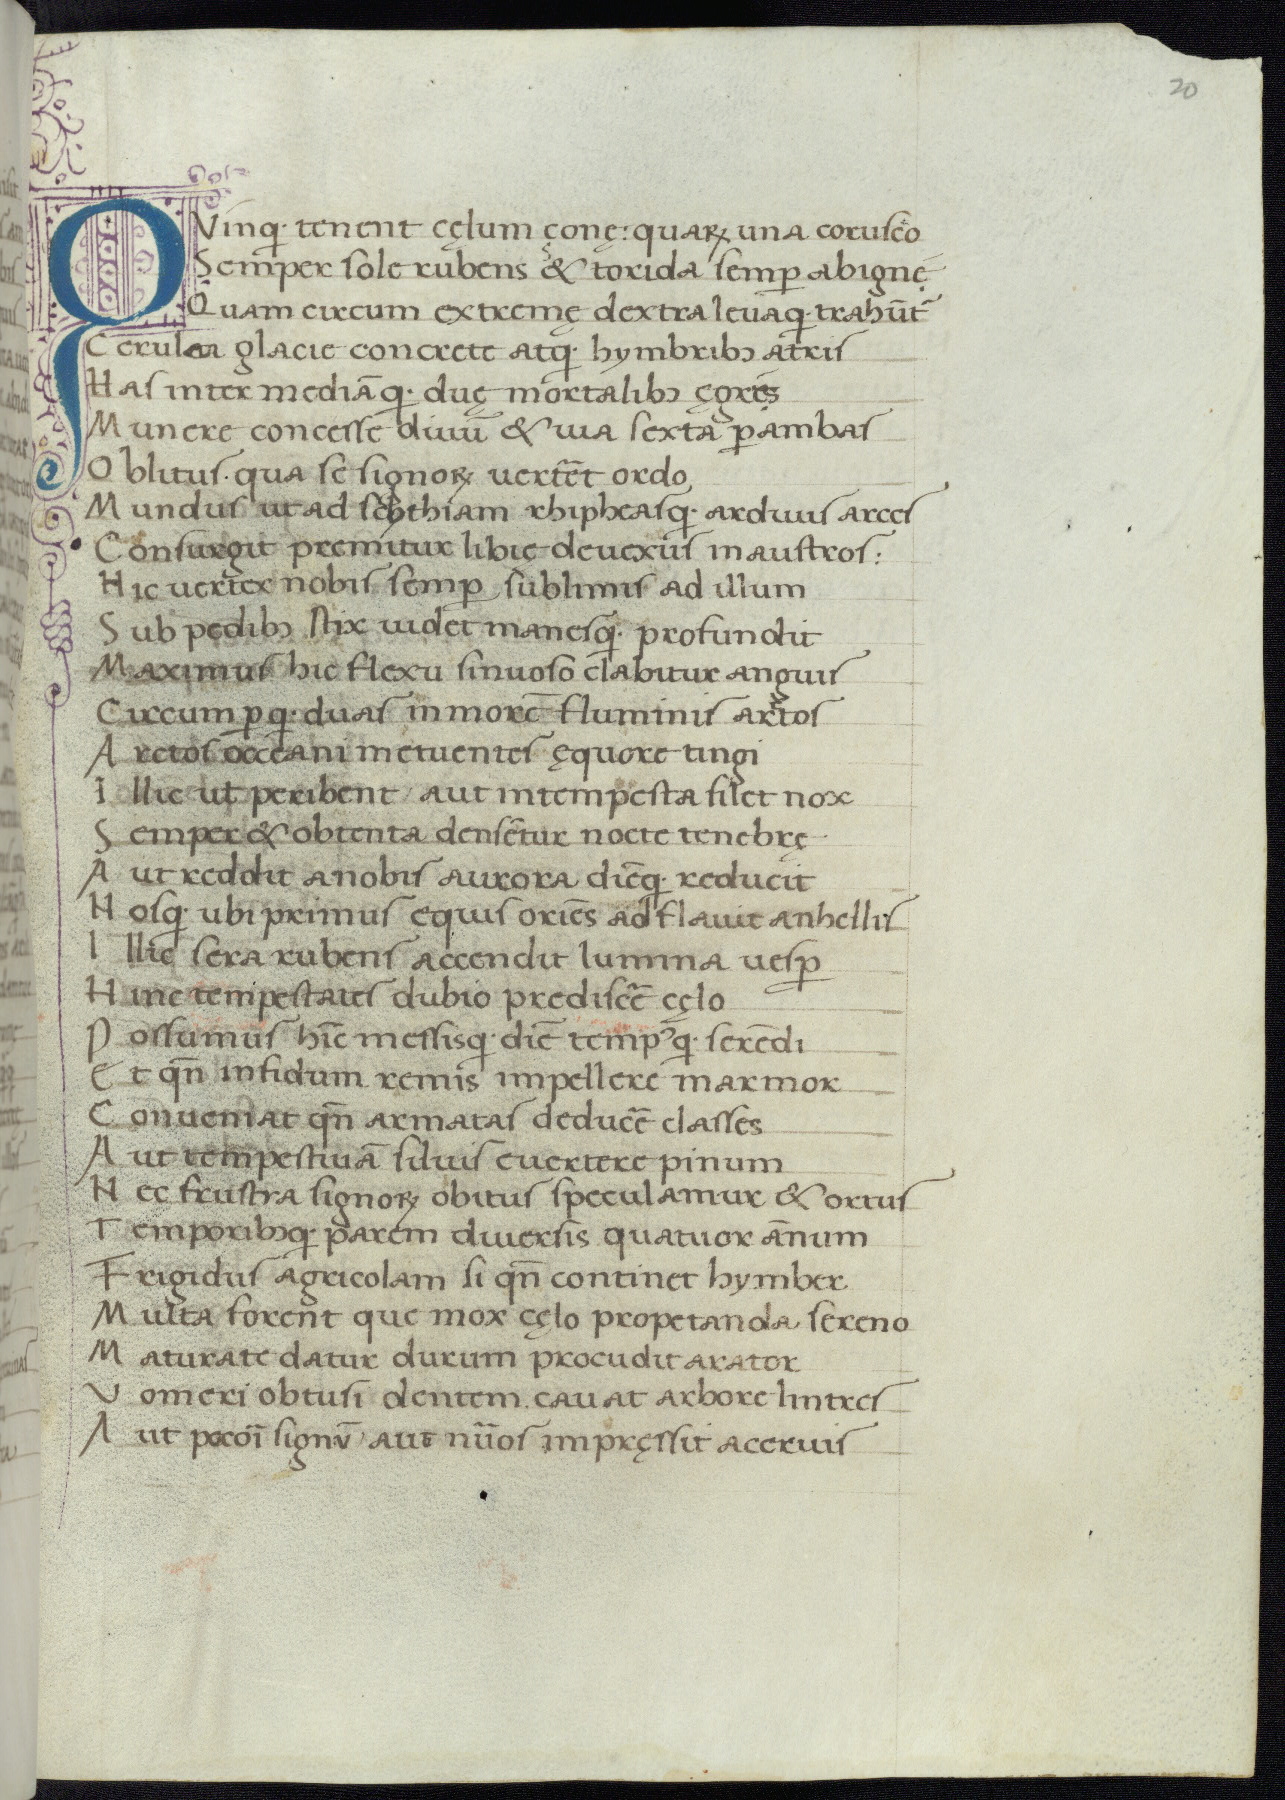 20
QVinq· tenent cęlum çonę: quaꝝ una corusco
Semper sole rubens & torida semꝑ ab ignę
Quam circum extremę dextra leuaq· trahūt
Cerulea glacie concrete atq· hymbribꝰ atris
Has inter mediāq· duę mortalibꝰ ęgris
Munere concesse diuū & uia sexta ꝑ ambas
Oblitus· qua se signoꝝ vertēt ordo
Mundus ut ad schithiam rhipheasq· arduus arces
Consurgit premitur libię deuexus in austros:
Hic vertex nobis semꝑ sublimis ad illum
Sub pedibꝰ stix uidet manesq· profundit
Maximus hic flexu sinuoso elabitur anguis
Circum ꝑq· duas in morē fluminis arctos
Arctos occeani metuentes ęquore tingi
Illic ut peribent aut intempesta silet nox
Semper & obtenta densētur nocte tenebrę
Aut reddit a nobis aurora diēq· reducit
Nosq· ubi primus equis oriēs adflauit anhellis
Illic sera rubens accendit lumina uesꝑ
Hinc tempestates dubio prediscē cęlo
Possumus hīc messisq· diē tempꝰq· serēdi
Et qn̄ infidum remis impellere marmor
Conueniat qn̄ armatas deducē classes
Aut tempestiuā siluis euertere pinum
Nec frustra signoꝝ obitus speculamur & ortus
Temporibꝰq· parem diuersis quatuor ānum
Frigidus agricolam si qn̄ continet hymber
Multa forent que mox cęlo propetanda sereno
Maturate datur durum procudit arator
Vomeri obtusi dentem cauat arbore lintres
Aut pecoī signū aut nūos impręssit aceruis